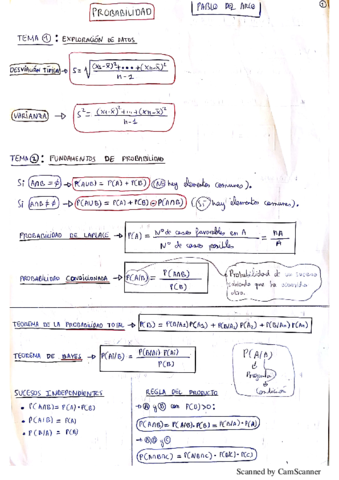 PROBABILIDAD
PABLO DEL ARCO
1
TEMA 1: EXPLORACIÓN DE DATOS
DESVIACIÓN TÍPICA → S = √((x₁-x̄)²+...+(xn-x̄)² / n-1)
VARIANZA → S² = (x₁-x̄)²+...+(xn-x̄)² / n-1
TEMA 2: FUNDAMENTOS DE PROBABILIDAD
Si A∩B = ∅ → P(A∪B) = P(A) + P(B) (NO hay elementos comunes).
Si A∩B ≠ ∅ → P(A∪B) = P(A) + P(B) - P(A∩B) (Sí hay elementos comunes).
PROBABILIDAD DE LAPLACE → P(A) = Nº de casos favorables en A / Nº de casos posibles
PROBABILIDAD CONDICIONADA → P(A/B) = P(A∩B) / P(B)
Probabilidad de un suceso
sabiendo que ha ocurrido
otro.
TEOREMA DE LA PROBABILIDAD TOTAL → P(B) = P(B/A₁)·P(A₁) + P(B/A₂)·P(A₂) + P(B/An)·P(An)
TEOREMA DE BAYES → P(Ai/B) = P(B/Ai)·P(Ai) / P(B)
Pregunta
Condición
SUCESOS INDEPENDIENTES
• P(A∩B) = P(A)·P(B)
• P(A/B) = P(A)
REGLA DEL PRODUCTO
→ A y B con P(B)>0:
P(A∩B) = P(A/B)·P(B) = P(B/A)·P(A)
P(A∩B∩C) = P(A/B∩C)·P(B/C)·P(C)
Scanned by CamScanner